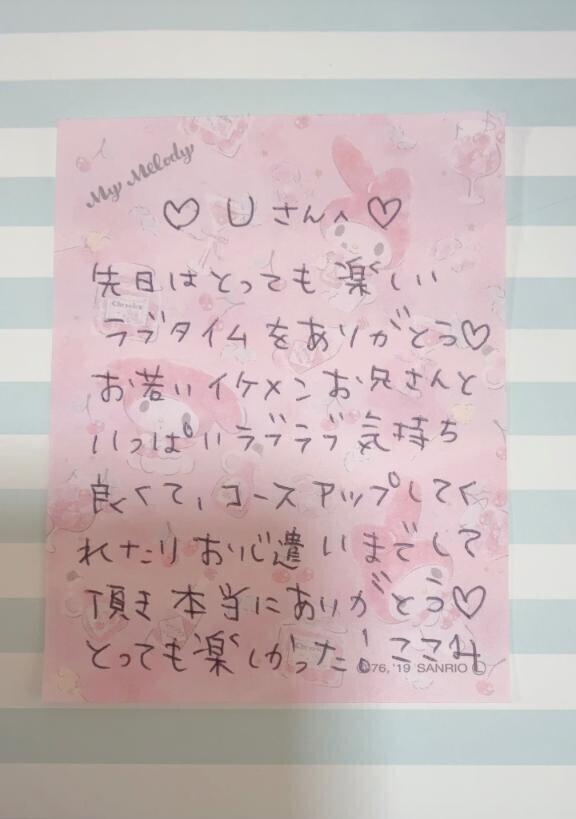 My Melody
♡ Uさんへ ♡
先日はとっても楽しい
ラブタイムをありがとう♡
お若いイケメンお兄さんと
いっぱいラブラブ気持ち
良くて、コースアップしてく
れたりお心遣いまでして
頂き本当にありがとう♡
とっても楽しかった! ここみ
©'76, '19 SANRIO Ⓛ